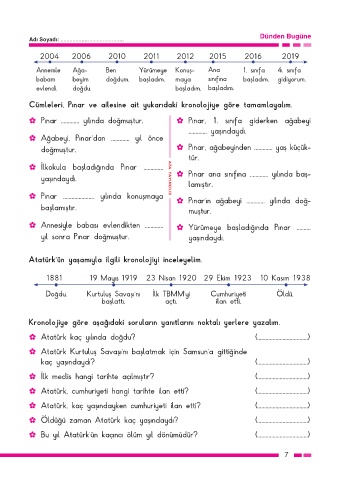 Adı Soyadı: ........................................
Dünden Bugüne
2004 2006 2010 2011 2012 2015 2016 2019
Annemle babam evlendi.
Ağabeyim doğdu.
Ben doğdum.
Yürümeye başladım.
Konuşmaya başladım.
Ana sınıfına başladım.
1. sınıfa başladım.
4. sınıfa gidiyorum.
Cümleleri, Pınar ve ailesine ait yukarıdaki kronolojiye göre tamamlayalım.
Pınar ............ yılında doğmuştur.
Ağabeyi, Pınar'dan ............ yıl önce
doğmuştur.
İlkokula başladığında Pınar ............
yaşındaydı.
Pınar .................... yılında konuşmaya
başlamıştır.
Annesiyle babası evlendikten ............
yıl sonra Pınar doğmuştur.
Pınar, 1. sınıfa giderken ağabeyi
............ yaşındaydı.
Pınar, ağabeyinden ............ yaş küçük-
tür.
Pınar ana sınıfına ............ yılında baş-
lamıştır.
Pınar'ın ağabeyi ............ yılında doğ-
muştur.
Yürümeye başladığında Pınar .........
yaşındaydı.
Atatürk'ün yaşamıyla ilgili kronolojiyi inceleyelim.
1881 19 Mayıs 1919 23 Nisan 1920 29 Ekim 1923 10 Kasım 1938
Doğdu. Kurtuluş Savaşı'nı İlk TBMM'yi Cumhuriyeti Öldü.
başlattı. açtı. ilan etti.
Kronolojiye göre aşağıdaki soruların yanıtlarını noktalı yerlere yazalım.
Atatürk kaç yılında doğdu? (..............................)
Atatürk Kurtuluş Savaşı'nı başlatmak için Samsun'a gittiğinde
kaç yaşındaydı? (..............................)
İlk meclis hangi tarihte açılmıştır? (..............................)
Atatürk, cumhuriyeti hangi tarihte ilan etti? (..............................)
Atatürk, kaç yaşındayken cumhuriyeti ilan etti? (..............................)
Öldüğü zaman Atatürk kaç yaşındaydı? (..............................)
Bu yıl Atatürk'ün kaçıncı ölüm yıl dönümüdür? (..............................)
7